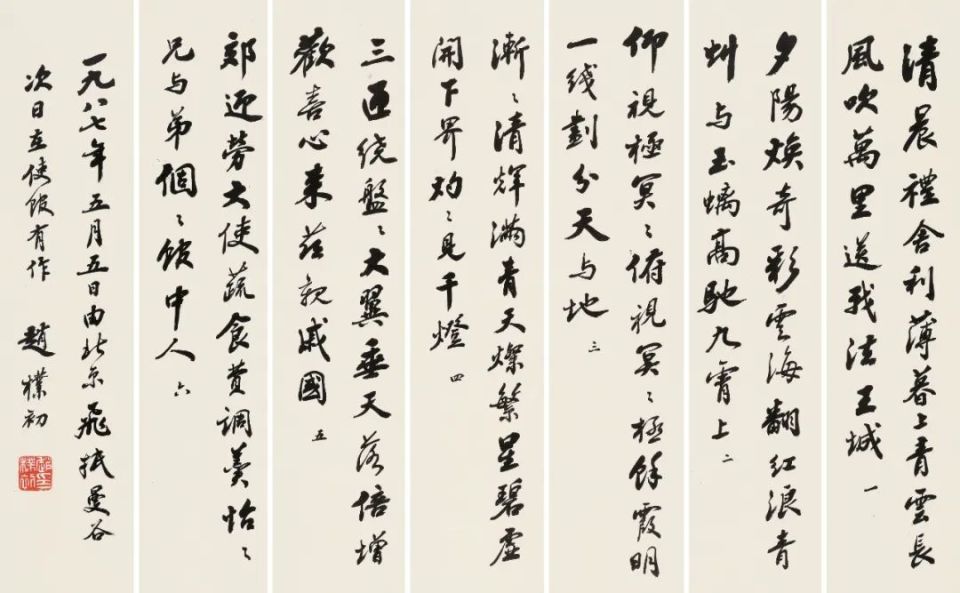 清晨禮舍利薄暮上青雲長
風吹萬里送我法王城 一
夕陽煥奇彩雲海翻紅浪青
虬與玉螭高馳九霄上 二
仰視極冥〻俯視冥〻極餘霞明
一线劃分天與地 三
漸〻清輝滿青天燦繁星碧虚
開下界灼〻見千燈 四
三匝绕盤〻大翼垂天落倍增
歡喜心来茲親戚國 五
郊迎勞大使蔬食費調羹怡〻
兄与弟個〻馆中人 六
一九八七年五月五日由北京飛抵曼谷
次日在使馆有作 趙樸初
趙樸初